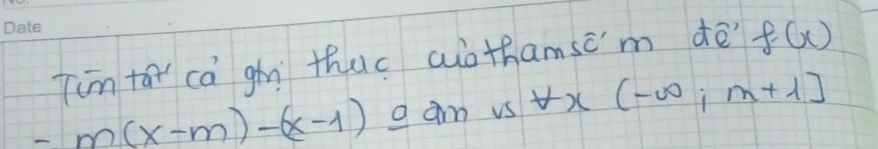 Date
Tìm tất cả gtrị thực của tham số m để f(x)
= m(x-m)-(x-1) 0 âm vs ∀x (-∞; m+1]